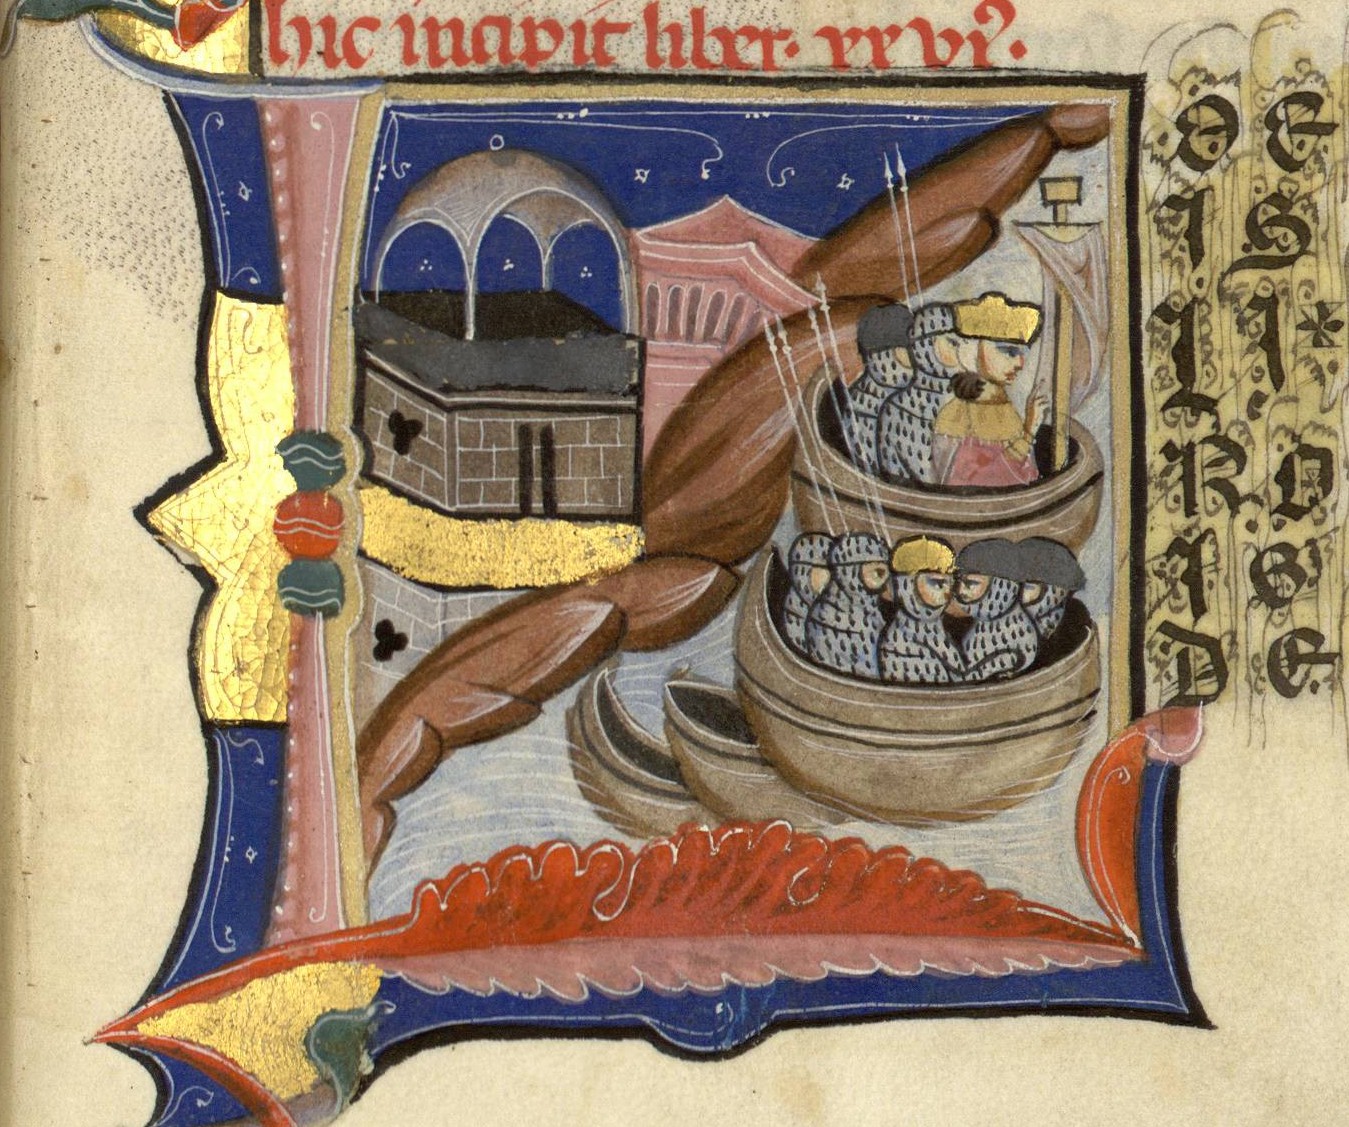 hic incipit liber. xxvi⁹.
O E
I S
L I
R O
I S
D E